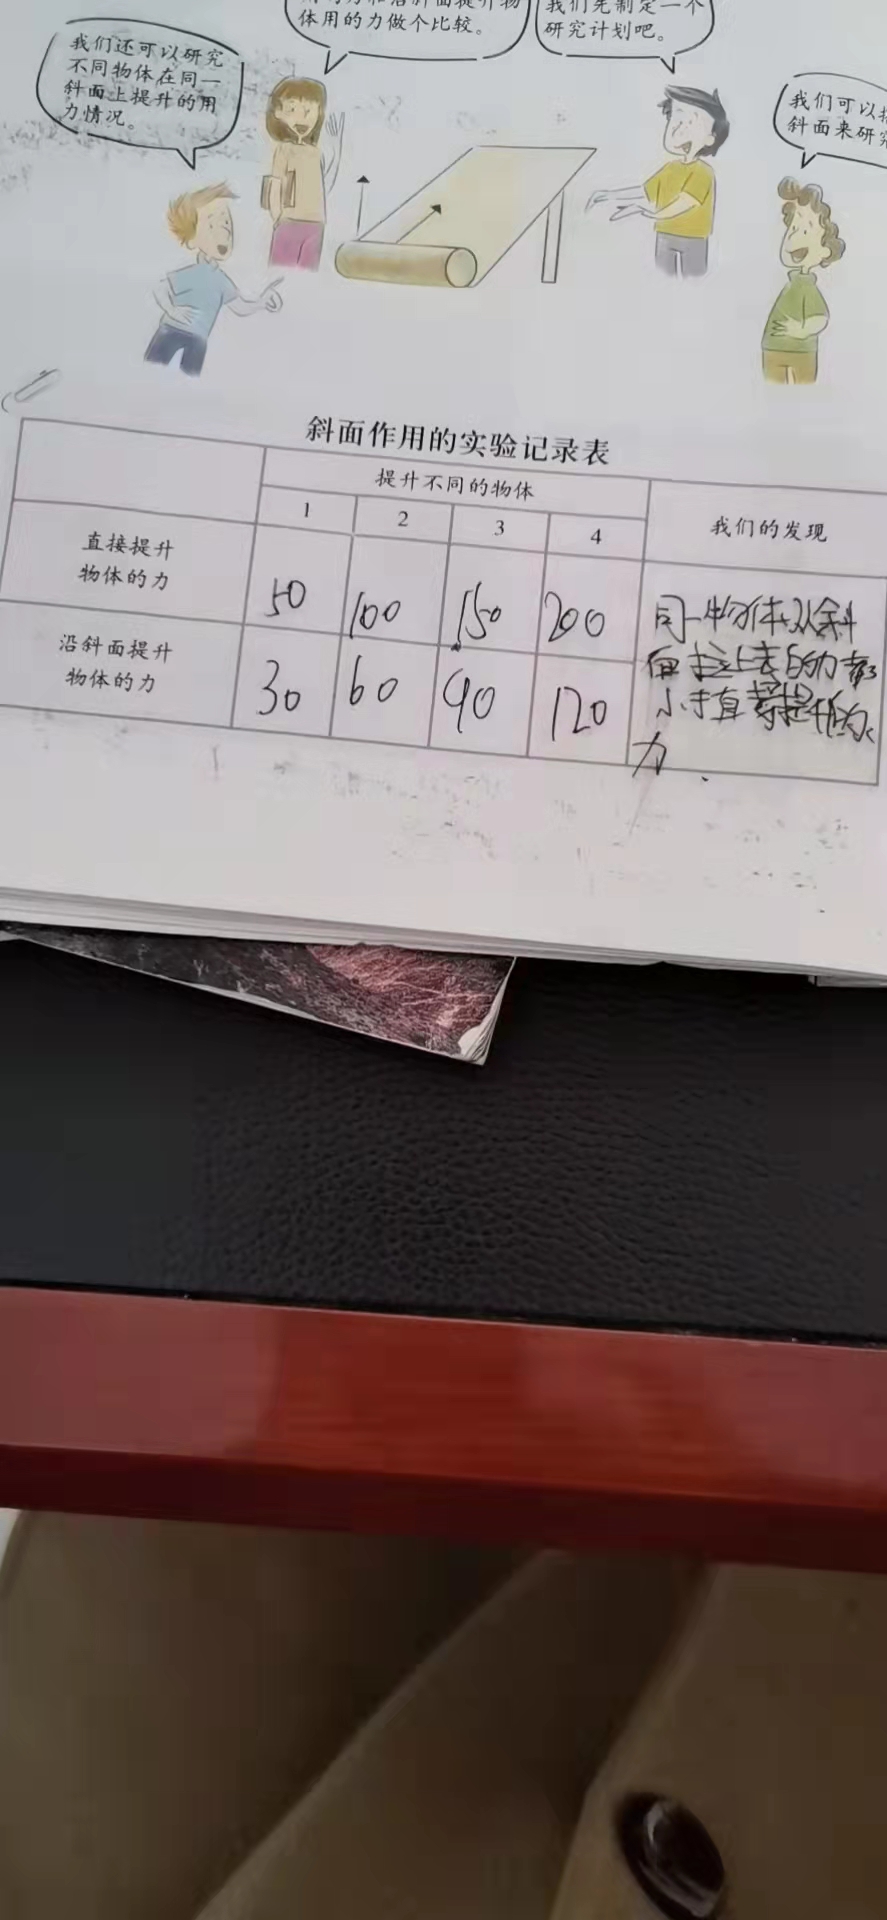 我们还可以研究
不同物体在同一
斜面上提升的用
力情况。
体用的力做个比较。
我们先制定一个
研究计划吧。
我们可以
斜面来研究
斜面作用的实验记录表
提升不同的物体
我们的发现
1 2 3 4
直接提升
物体的力
50 100 150 200
沿斜面提升
物体的力
30 60 90 120
同一物体从斜
面拉上去的力都
小于直接提升的
力.